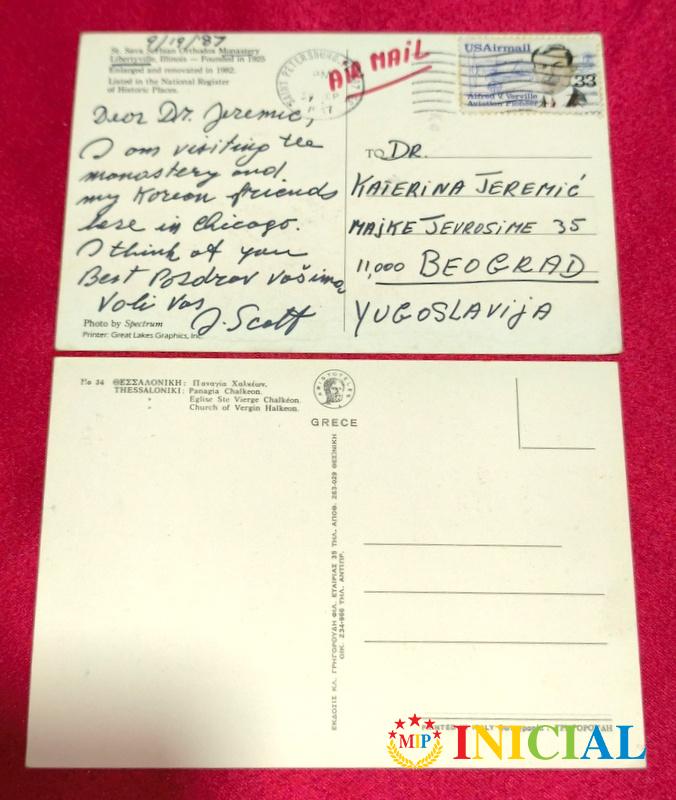 9/19/87
St. Sava Serbian Orthodox Monastery
Libertyville, Illinois — Founded in 1923
Enlarged and renovated in 1982.
Listed in the National Register
of Historic Places.
SAINT PETERSBURG
AIR MAIL
USAirmail
33
Alfred V. Verville
Aviation Pioneer
Dear Dr. Jeremic,
I am visiting the
monastery and
my Korean friends
here in Chicago.
I think of you
Best Pozdrav vašima
Voli vas
J. Scott
Photo by Spectrum
Printer: Great Lakes Graphics, Inc.
TO DR.
KATERINA JEREMIĆ
MAJKE JEVROSIME 35
11,000 BEOGRAD
YUGOSLAVIJA
No 34 ΘΕΣΣΑΛΟΝΙΚΗ: Παναγία Χαλκέων.
THESSALONIKI: Panagia Chalkeon.
" Eglise Ste Vierge Chalkéon.
" Church of Vergin Halkeon.
ARISTOTELES
GRECE
ΕΚΔΟΣΙΣ ΚΛ. ΓΡΗΓΟΡΟΥΔΗ ΦΙΛ. ΕΤΑΙΡΙΑΣ 35 ΤΗΛ. ΑΠΟΘ. 263-029 ΘΕΣ)ΝΙΚΗ
ΟΙΚ. 234-966 ΤΗΛ. ΑΝΤΙΠΡ.
PRINTED
ΓΡΗΓΟΡΟΥΔΗ
MIP INICIAL